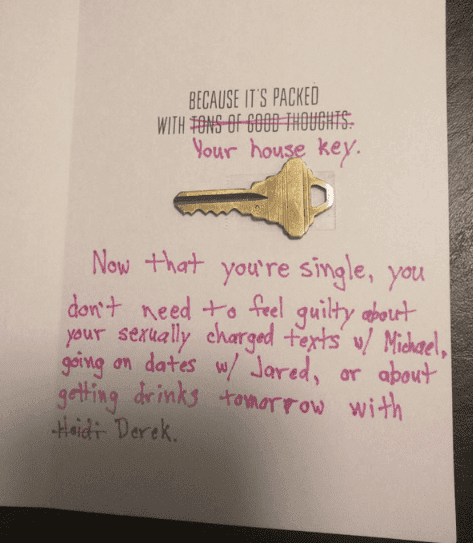 BECAUSE IT'S PACKED
WITH TONS OF GOOD THOUGHTS.
Your house key.
Now that you're single, you
don't need to feel guilty about
your sexually charged texts w/ Michael,
going on dates w/ Jared, or about
getting drinks tomorrow with
Heidi Derek.